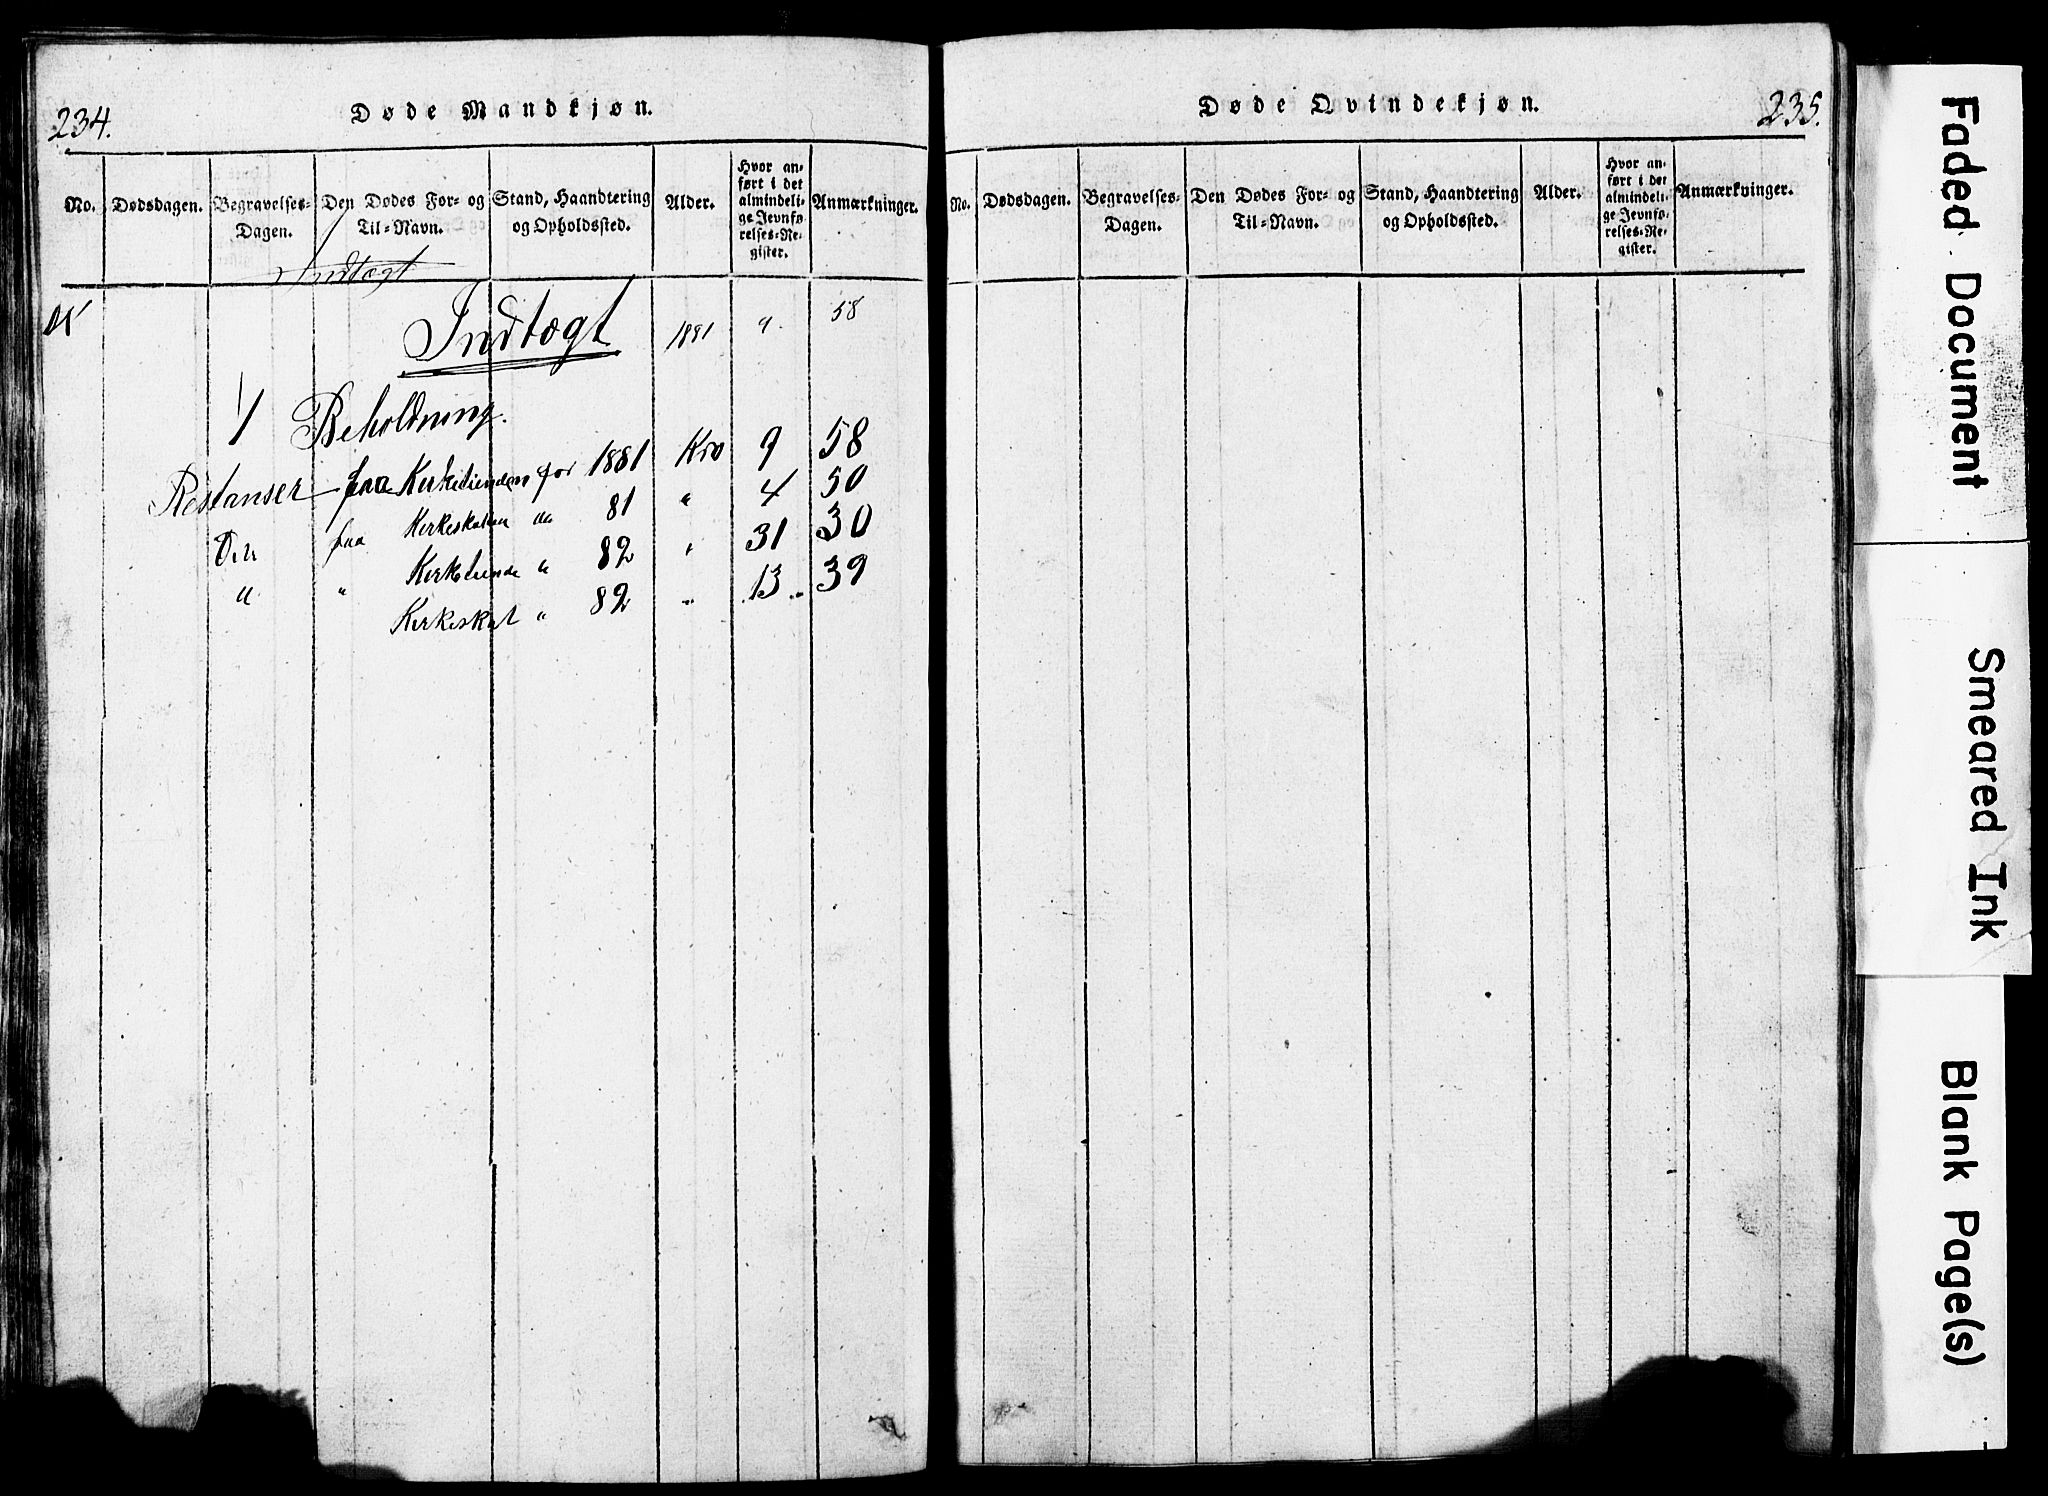 234.
Døde Mandkjøn.
No. Dødsdagen. Begravelses-Dagen. Den Dødes For- og Til-Navn. Stand, Haandtering og Opholdssted. Alder. Hvor anført i det almindelige Jevnførelses-Register. Anmærkninger.
Indtægt
Indtægt 1881 9 58
1/ Beholdning.
Restanser paa Kirketienden for 1881 Kro 9 58
Do paa Kirkeskatten do 81 " 4 50
" " Kirketiende " 82 " 31 30
Kirkeskat " 82 " 13 39
235.
Døde Qvindekjøn.
No. Dødsdagen. Begravelses-Dagen. Den Dødes For- og Til-Navn. Stand, Haandtering og Opholdssted. Alder. Hvor anført i det almindelige Jevnførelses-Register. Anmærkninger.
Faded Document
Smeared Ink
Blank Page(s)